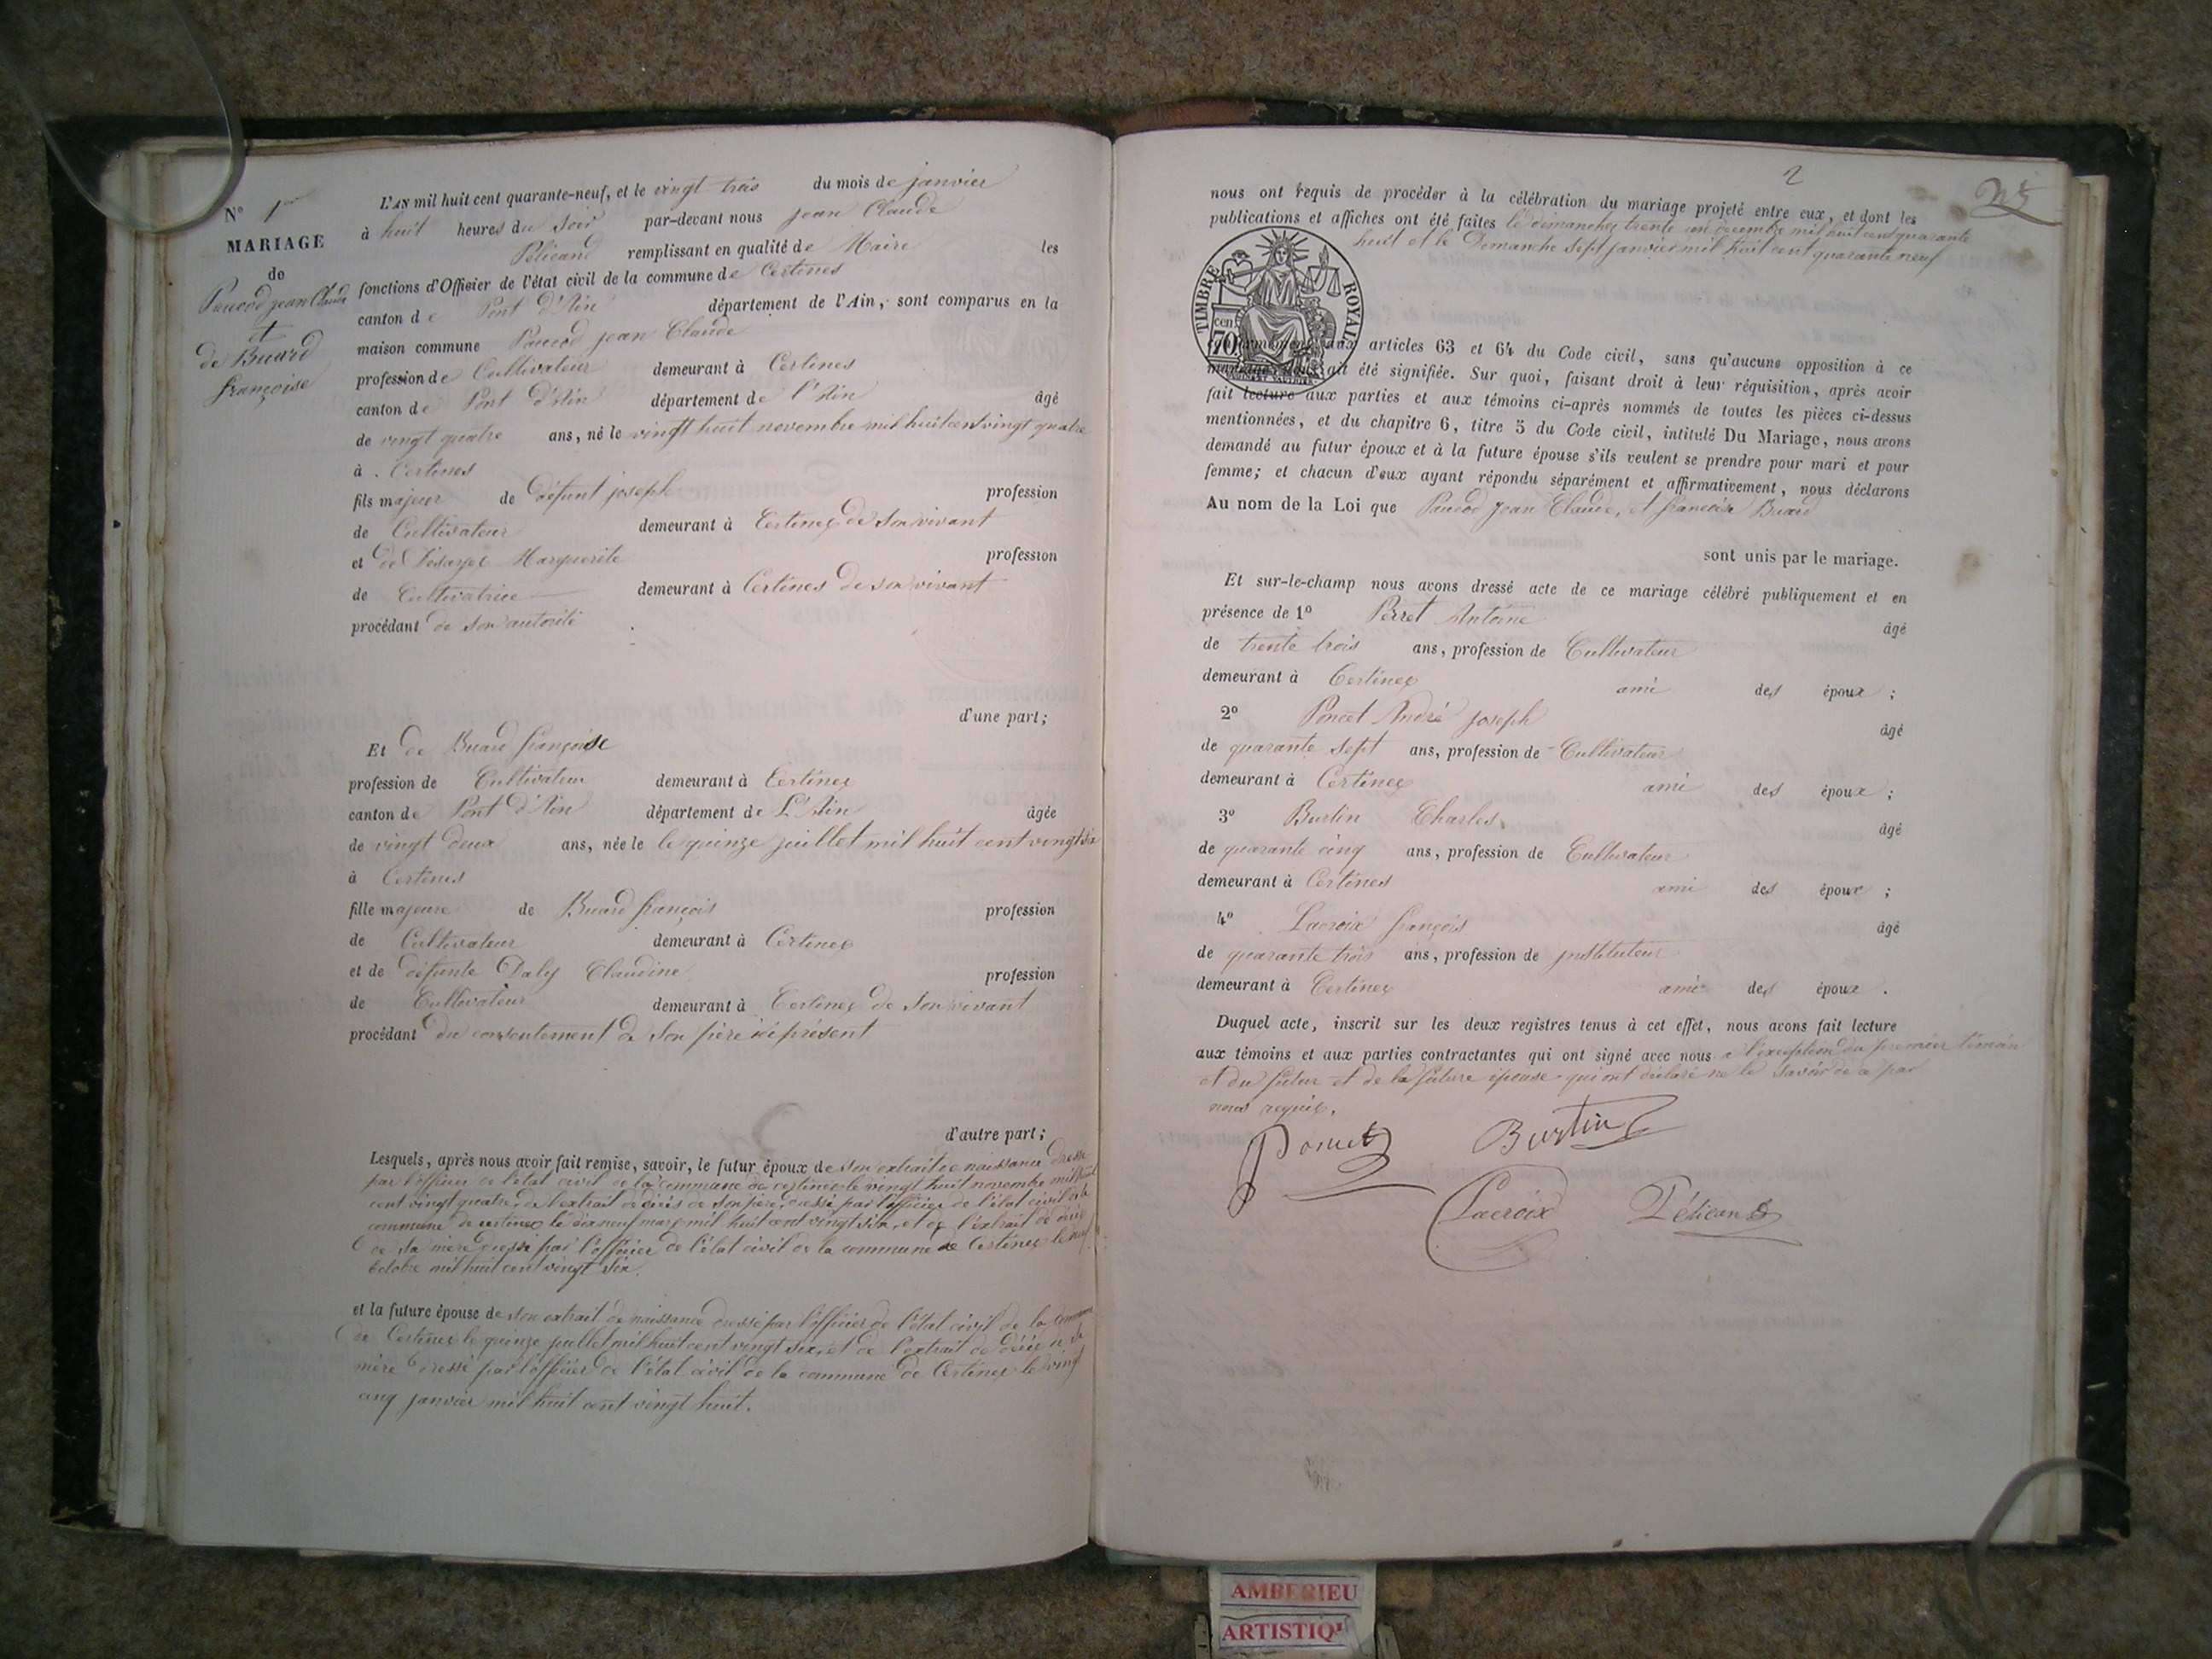 N° 1er
MARIAGE
de
Paucod jean Claude
et
de Buard
françoise
L'AN mil huit cent quarante-neuf, et le vingt trois du mois de janvier
à huit heures du soir par-devant nous jean Claude
Pélicand remplissant en qualité de Maire les
fonctions d'Officier de l'état civil de la commune de Certines
canton de Pont d'Ain département de l'Ain, sont comparus en la
maison commune Paucod jean Claude
profession de Cultivateur demeurant à Certines
canton de Pont d'Ain département de l'Ain âgé
de vingt quatre ans, né le vingt huit novembre mil huit cent vingt quatre
à Certines
fils majeur de défunt joseph profession
de Cultivateur demeurant à Certines de son vivant
et de Marguerite profession
de Cultivatrice demeurant à Certines de son vivant
procédant de son autorité
d'une part;
Et de Buard françoise
profession de Cultivateur demeurant à Certines
canton de Pont d'Ain département de L'Ain âgée
de vingt deux ans, née le le quinze juillet mil huit cent vingt six
à Certines
fille majeure de Buard françois profession
de Cultivateur demeurant à Certines
et de défunte Daly Claudine profession
de Cultivateur demeurant à Certines de son vivant
procédant du consentement de son père ici présent
d'autre part;
Lesquels, après nous avoir fait remise, savoir, le futur époux de son extrait de naissance dressé
par l'officier de l'état civil de la commune de certines le vingt huit novembre mil huit
cent vingt quatre, de l'extrait de décès de son père, dressé par l'officier de l'état civil de la
commune de certines le dix neuf mars mil huit cent vingt six, et de l'extrait de décès
de sa mère dressé par l'officier de l'état civil de la commune de Certines le neuf
octobre mil huit cent vingt six.
et la future épouse de son extrait de naissance dressé par l'officier de l'état civil de la commune
de Certines le quinze juillet mil huit cent vingt six, et de l'extrait de décès de sa
mère dressé par l'officier de l'état civil de la commune de Certines le vingt
cinq janvier mil huit cent vingt huit.
2
nous ont requis de procéder à la célébration du mariage projeté entre eux, et dont les
publications et affiches ont été faites le dimanche trente un decembre mil huit cent quarante
huit et le Dimanche sept janvier mil huit cent quarante neuf
TIMBRE ROYAL
cen. 70
conformément aux articles 63 et 64 du Code civil, sans qu'aucune opposition à ce
mariage nous ait été signifiée. Sur quoi, faisant droit à leur réquisition, après avoir
fait lecture aux parties et aux témoins ci-après nommés de toutes les pièces ci-dessus
mentionnées, et du chapitre 6, titre 5 du Code civil, intitulé Du Mariage, nous avons
demandé au futur époux et à la future épouse s'ils veulent se prendre pour mari et pour
femme; et chacun d'eux ayant répondu séparément et affirmativement, nous déclarons
Au nom de la Loi que Paucod Jean Claude, et françoise Buard
sont unis par le mariage.
Et sur-le-champ nous avons dressé acte de ce mariage célébré publiquement et en
présence de 1° Perret Antoine âgé
de trente trois ans, profession de Cultivateur
demeurant à Certines ami des époux ;
2° Poncet André joseph âgé
de quarante sept ans, profession de Cultivateur
demeurant à Certines ami des époux ;
3° Burtin Charles âgé
de quarante cinq ans, profession de Cultivateur
demeurant à Certines ami des époux ;
4° Lacroix françois âgé
de quarante trois ans, profession de jnstituteur
demeurant à Certines ami des époux .
Duquel acte, inscrit sur les deux registres tenus à cet effet, nous avons fait lecture
aux témoins et aux parties contractantes qui ont signé avec nous a l'exception du premier témoin
et du futur et de la future épouse qui ont déclaré ne le savoir de ce par
nous requis.
Poncet Burtin
Lacroix Pélicand
AMBERIEU
ARTISTIQ